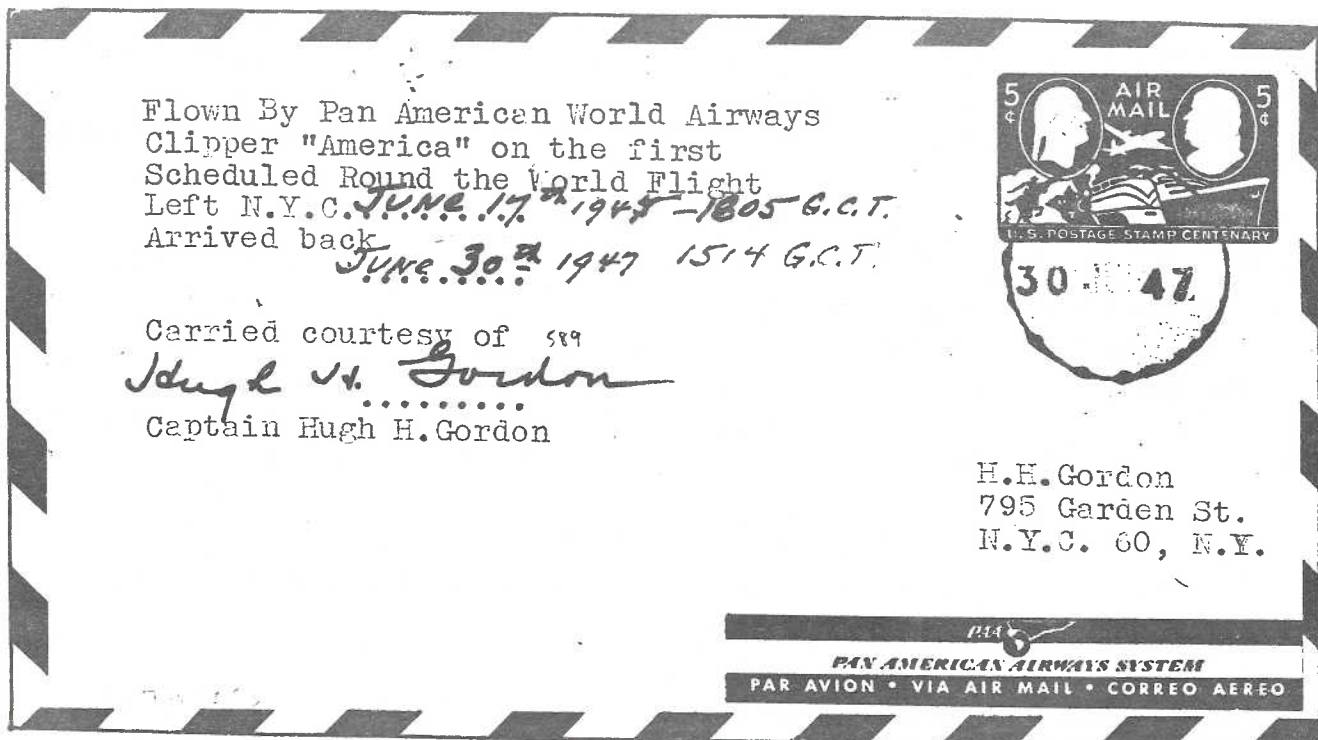 Flown By Pan American World Airways
Clipper "America" on the first
Scheduled Round the World Flight
Left N.Y.C. JUNE 17th 1947 - 1805 G.C.T.
Arrived back
JUNE 30th 1947 1514 G.C.T.
Carried courtesy of 589
Hugh H. Gordon
Captain Hugh H.Gordon
5¢ AIR MAIL 5¢
U.S. POSTAGE STAMP CENTENARY
30 47
H.H.Gordon
795 Garden St.
N.Y.C. 60, N.Y.
PAA
PAN AMERICAN AIRWAYS SYSTEM
PAR AVION • VIA AIR MAIL • CORREO AEREO